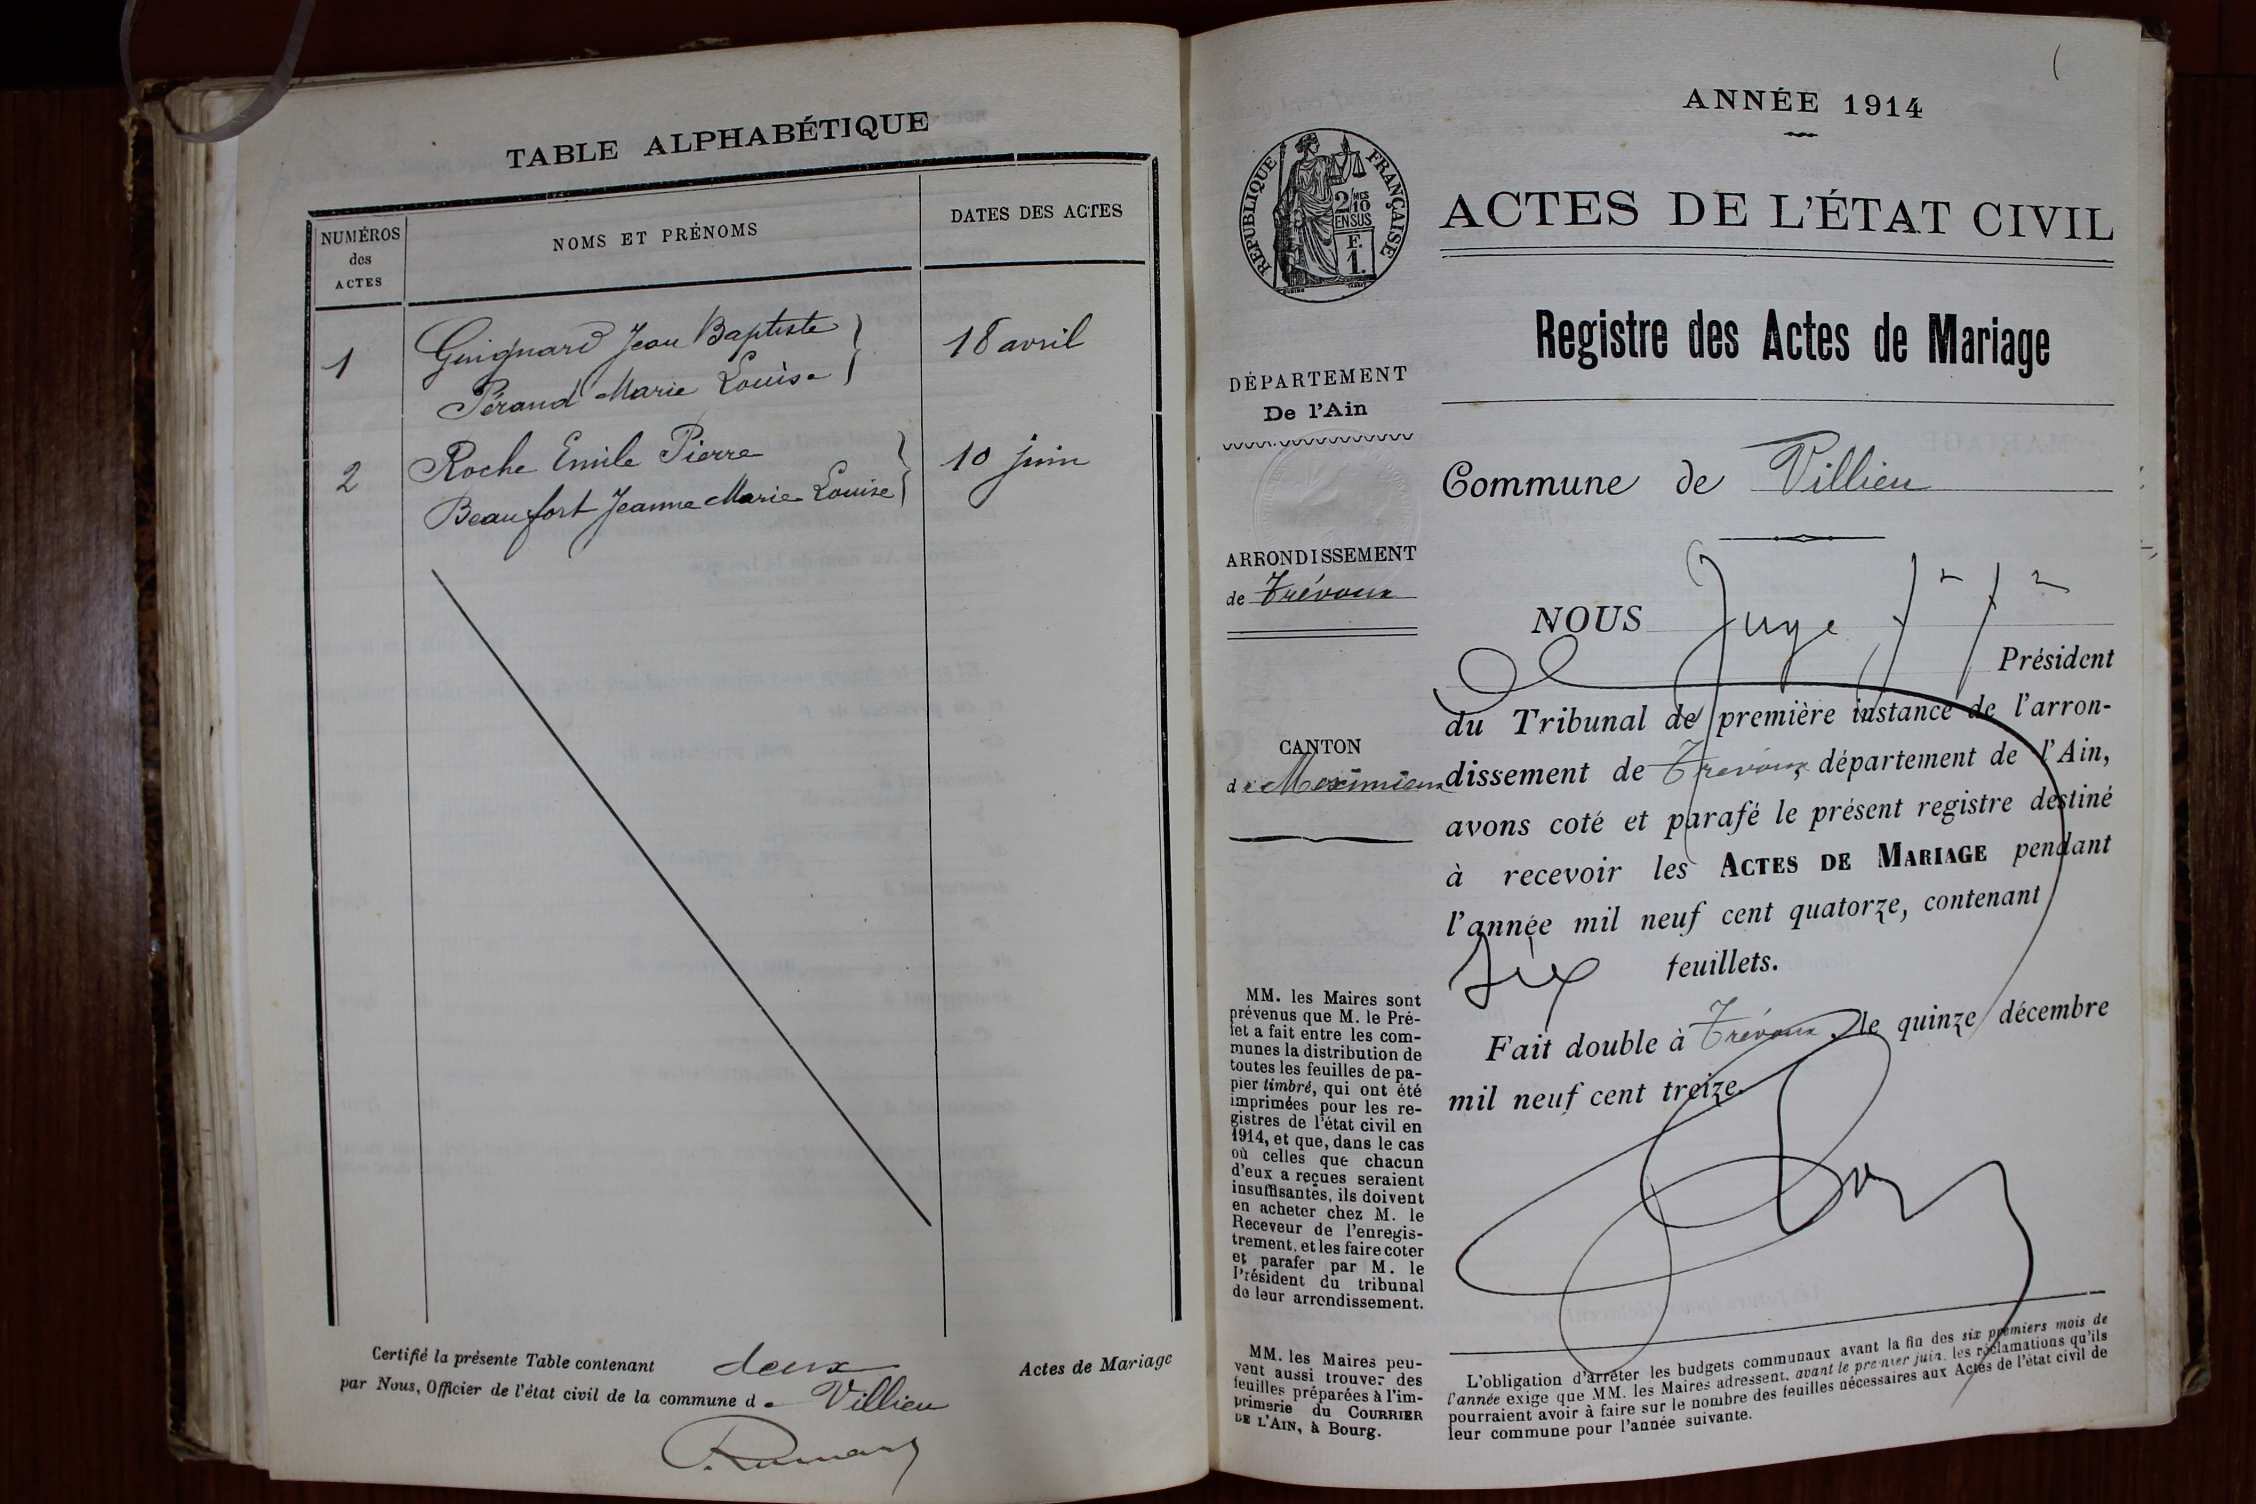 TABLE ALPHABÉTIQUE
NUMÉROS
des
ACTES
NOMS ET PRÉNOMS
DATES DES ACTES
1
Guignard Jean Baptiste
18 avril
Pérand Marie Louise
2
Roche Emile Pierre
10 juin
Beaufort Jeanne Marie Louise
Certifié la présente Table contenant deux Actes de Mariage
par Nous, Officier de l'état civil de la commune de Villieu
ANNÉE 1914
RÉPUBLIQUE FRANÇAISE
2/10
MES
EN SUS
F.
1.
ACTES DE L'ÉTAT CIVIL
Registre des Actes de Mariage
DÉPARTEMENT
De l'Ain
ARRONDISSEMENT
de Trévoux
CANTON
de Meximieux
MM. les Maires sont
prévenus que M. le Pré-
fet a fait entre les com-
munes la distribution de
toutes les feuilles de pa-
pier timbré, qui ont été
imprimées pour les re-
gistres de l'état civil en
1914, et que, dans le cas
où celles que chacun
d'eux a reçues seraient
insuffisantes, ils doivent
en acheter chez M. le
Receveur de l'enregis-
trement, et les faire coter
et parafer par M. le
Président du tribunal
de leur arrondissement.
MM. les Maires peu-
vent aussi trouver des
feuilles préparées à l'im-
primerie du COURRIER
DE L'AIN, à Bourg.
Commune de Villieu
NOUS Juge
Président
du Tribunal de première instance de l'arron-
dissement de Trévoux, département de l'Ain,
avons coté et parafé le présent registre destiné
à recevoir les ACTES DE MARIAGE pendant
l'année mil neuf cent quatorze, contenant
six feuillets.
Fait double à Trévoux, le quinze décembre
mil neuf cent treize.
L'obligation d'arrêter les budgets communaux avant la fin des six premiers mois de
l'année exige que MM. les Maires adressent, avant le premier juin, les réclamations qu'ils
pourraient avoir à faire sur le nombre des feuilles nécessaires aux Actes de l'état civil de
leur commune pour l'année suivante.